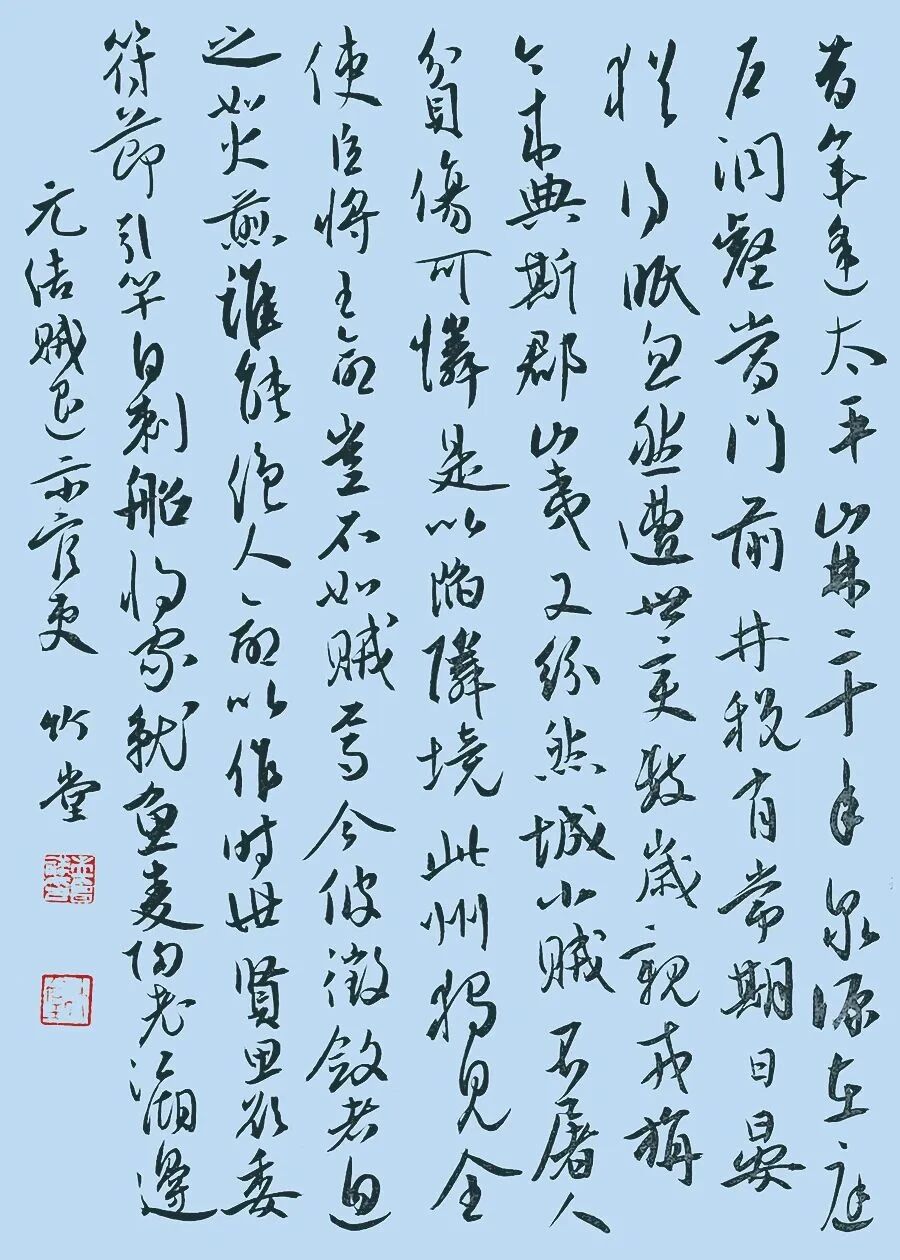 昔年逢太平山林二十年泉源在庭
户洞壑當門前井税有常期日晏
猶得眠忽然遭世变数歲親戎旃
今来典斯郡山夷又紛然城小賊不屠人
貧傷可憐是以陷隣境此州獨見全
使臣将王命豈不如賊焉今彼徵斂者迫
之如火煎誰能絶人命以作時世賢思欲委
符節引竿自刺船将家就魚麦归老江湖邊
元结賊退示官吏 竹堂